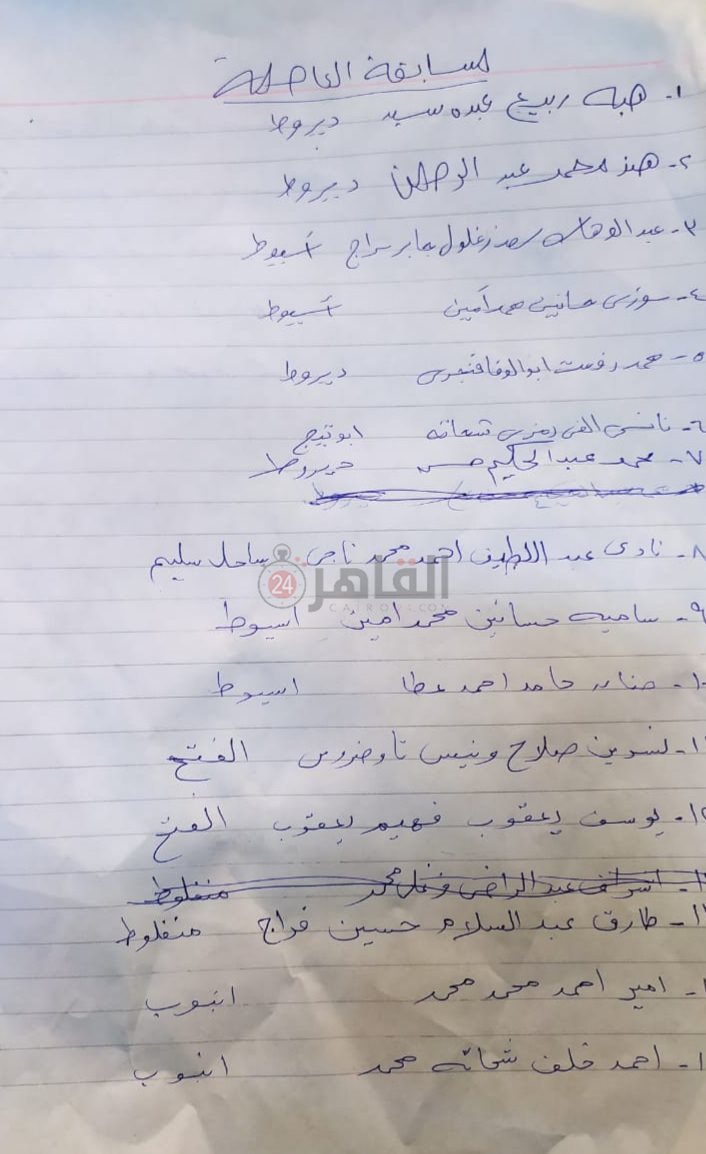 لسابقة العاصلة
١- هبه ربيع عبده سيد ديروط
٢- هند محمد عبد الرحمن ديروط
٣- عبد الوهاب سعد زغلول جابر سراج أسيوط
٤- سوزى أمين أسيوط
٥- محمد رفعت ابو الوفا ديروط
٦- نانسى الفى رمزى شحاته ابوتيج
٧- محمد عبد الحكيم حسن ديروط
٨- نادى عبد اللطيف احمد محمد ناجى ساحل سليم
القاهرة 24
CAIRO24.COM
٩- ساميه حسانين محمد امين اسيوط
١٠- حامد احمد عطا اسيوط
١- نسرين صلاح ونيس تاوضروس الفتح
١٢- يوسف يعقوب فهيم يعقوب الفتح
١- اشرف عبد الراضى محمد منفلوط
١- طارق عبد السلام حسين فراج منفلوط
١- امير احمد محمد محمد ابنوب
١- احمد خلف شحاته محمد ابنوب